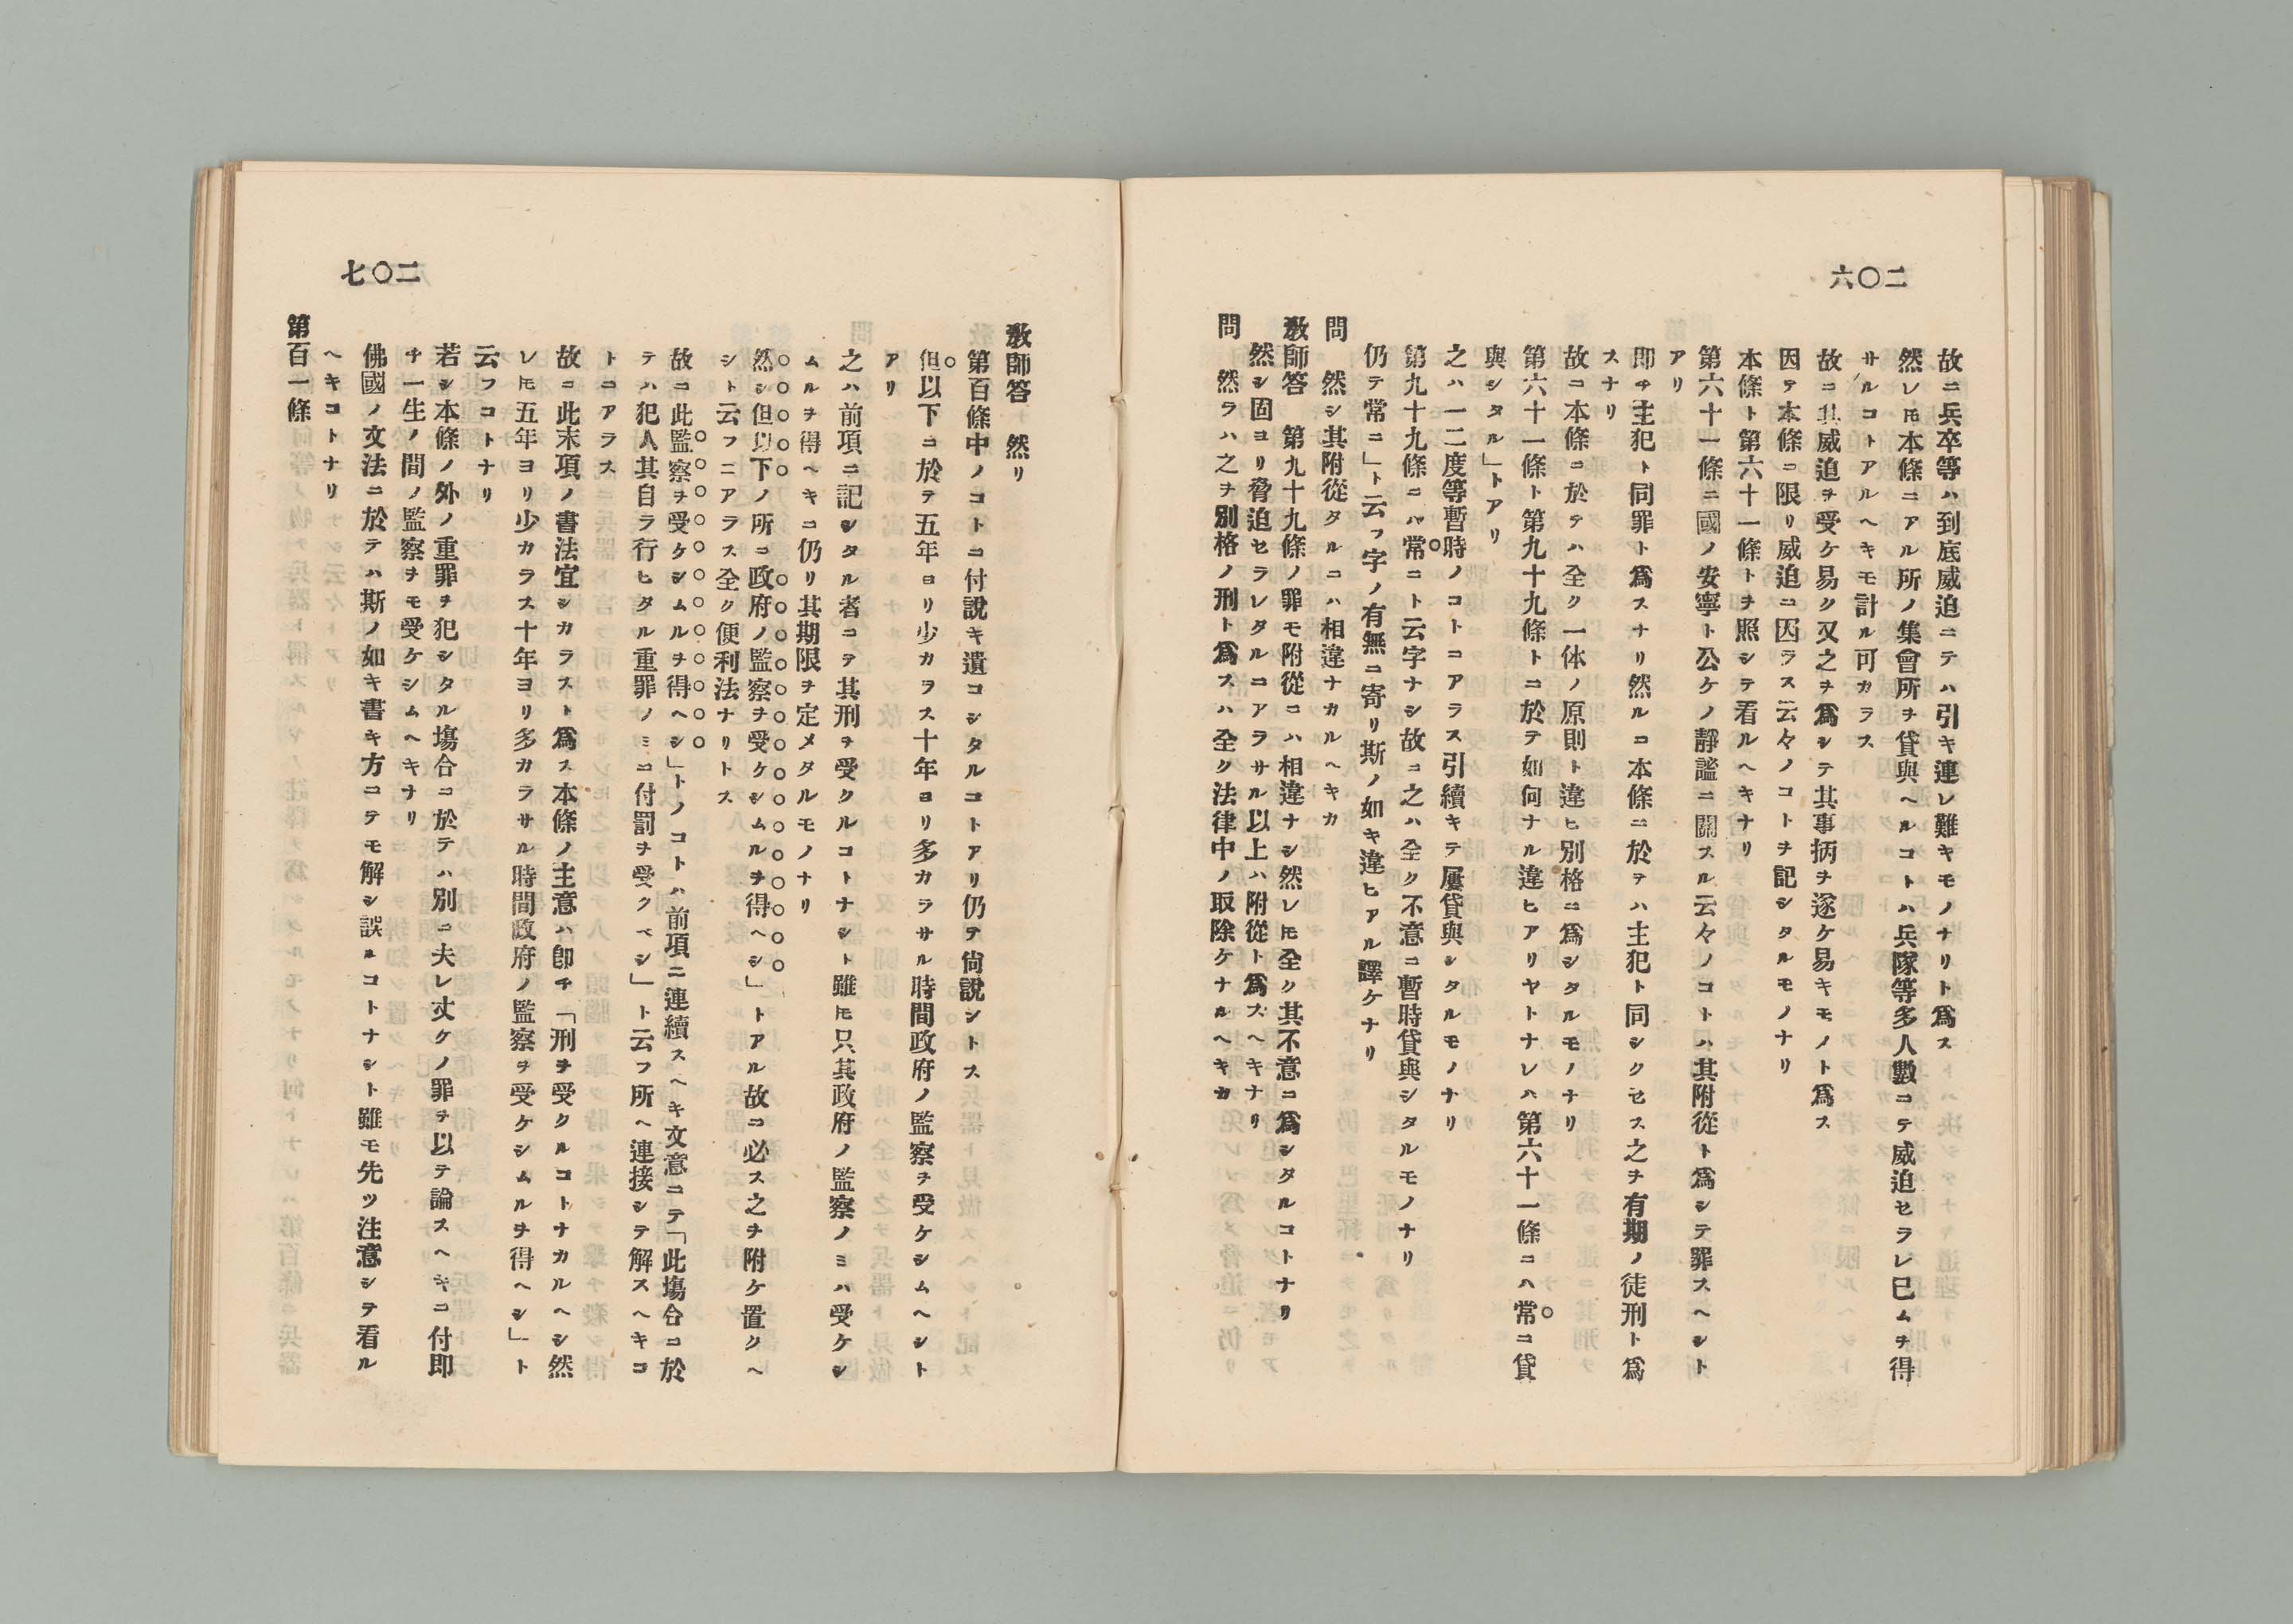 二〇六
故ニ兵卒等ハ到底威迫ニテハ引キ連レ難キモノナリト爲ス
然レㇳモ本條ニアル所ノ集會所ヲ貸與ヘルコトハ兵隊等多人數ニテ威迫セラレ已ムヲ得
サルコトアルヘキモ計ル可カラス
故ニ其威迫ヲ受ケ易ク又之ヲ爲シテ其事柄ヲ遂ケ易キモノト爲ス
因テ本條ニ限リ威迫ニ因ラス云々ノコトヲ記シタルモノナリ
本條ト第六十一條トヲ照シテ看ルヘキナリ
第六十一條ニ國ノ安寧ト公ケノ靜謐ニ關スル云々ノコトハ其附從ト爲シテ罪スヘシト
アリ
即チ主犯ト同罪ト爲スナリ然ルニ本條ニ於テハ主犯ト同シクセス之ヲ有期ノ徒刑ト爲
スナリ
故ニ本條ニ於テハ全ク一体ノ原則ト違ヒ別格ニ爲シタルモノナリ
第六十一條ト第九十九條トニ於テ如何ナル違ヒアリヤトナレハ第六十一條ニハ常ニ貸
與シタル」トアリ
之ハ一二度等暫時ノコトニアラス引續キテ屢貸與シタルモノナリ
第九十九條ニハ常ニト云字ナシ故ニ之ハ全ク不意ニ暫時貸與シタルモノナリ
仍テ常ニ」ト云フ字ノ有無ニ寄リ斯ノ如キ違ヒアル譯ケナリ
問 然シ其附從タルニハ相違ナカルヘキカ
敎師答 第九十九條ノ罪モ附從ニハ相違ナシ然レㇳモ全ク其不意ニ爲シタルコトナリ
然シ固ヨリ脅迫セラレタルニアラサル以上ハ附從ト爲スヘキナリ
問 然ラハ之ヲ別格ノ刑ト爲スハ全ク法律中ノ取除ケナルヘキカ
二〇七
敎師答 然リ
第百條中ノコトニ付說キ遺コシタルコトアリ仍テ尙說シトス
但以下ニ於テ五年ヨリ少カラス十年ヨリ多カラサル時間政府ノ監察ヲ受ケシムヘシト
アリ
之ハ前項ニ記シタル者ニテ其刑ヲ受クルコトナシト雖ㇳモ只其政府ノ監察ノミハ受ケシ
ムルヲ得ヘキニ仍リ其期限ヲ定メタルモノナリ
然シ但以下ノ所ニ政府ノ監察ヲ受ケシムルヲ得ヘシ」トアル故ニ必ス之ヲ附ケ置クヘ
シト云フニアラス全ク便利法ナリトス
故ニ此監察ヲ受ケシムルヲ得ヘシ」トノコトハ前項ニ連續スヘキ文意ニテ「此塲合ニ於
テハ犯人其自ラ行ヒタル重罪ノミニ付罰ヲ受クベシ」ト云フ所ヘ連接シテ解スヘキコ
トニアラス
故ニ此末項ノ書法宜シカラスト爲ス本條ノ主意ハ卽チ「刑ヲ受クルコトナカルヘシ然
レㇳモ五年ヨリ少カラス十年ヨリ多カラサル時間政府ノ監察ヲ受ケシムルヲ得ヘシ」ト
云フコトナリ
若シ本條ノ外ノ重罪ヲ犯シタル塲合ニ於テハ別ニ夫レ丈ケノ罪ヲ以テ論スヘキニ付即
チ一生ノ間ノ監察ヲモ受ケシムヘキナリ
佛國ノ文法ニ於テハ斯ノ如キ書キ方ニテモ解シ誤ルコトナシト雖モ先ツ注意シテ看ル
ヘキコトナリ
第百一條